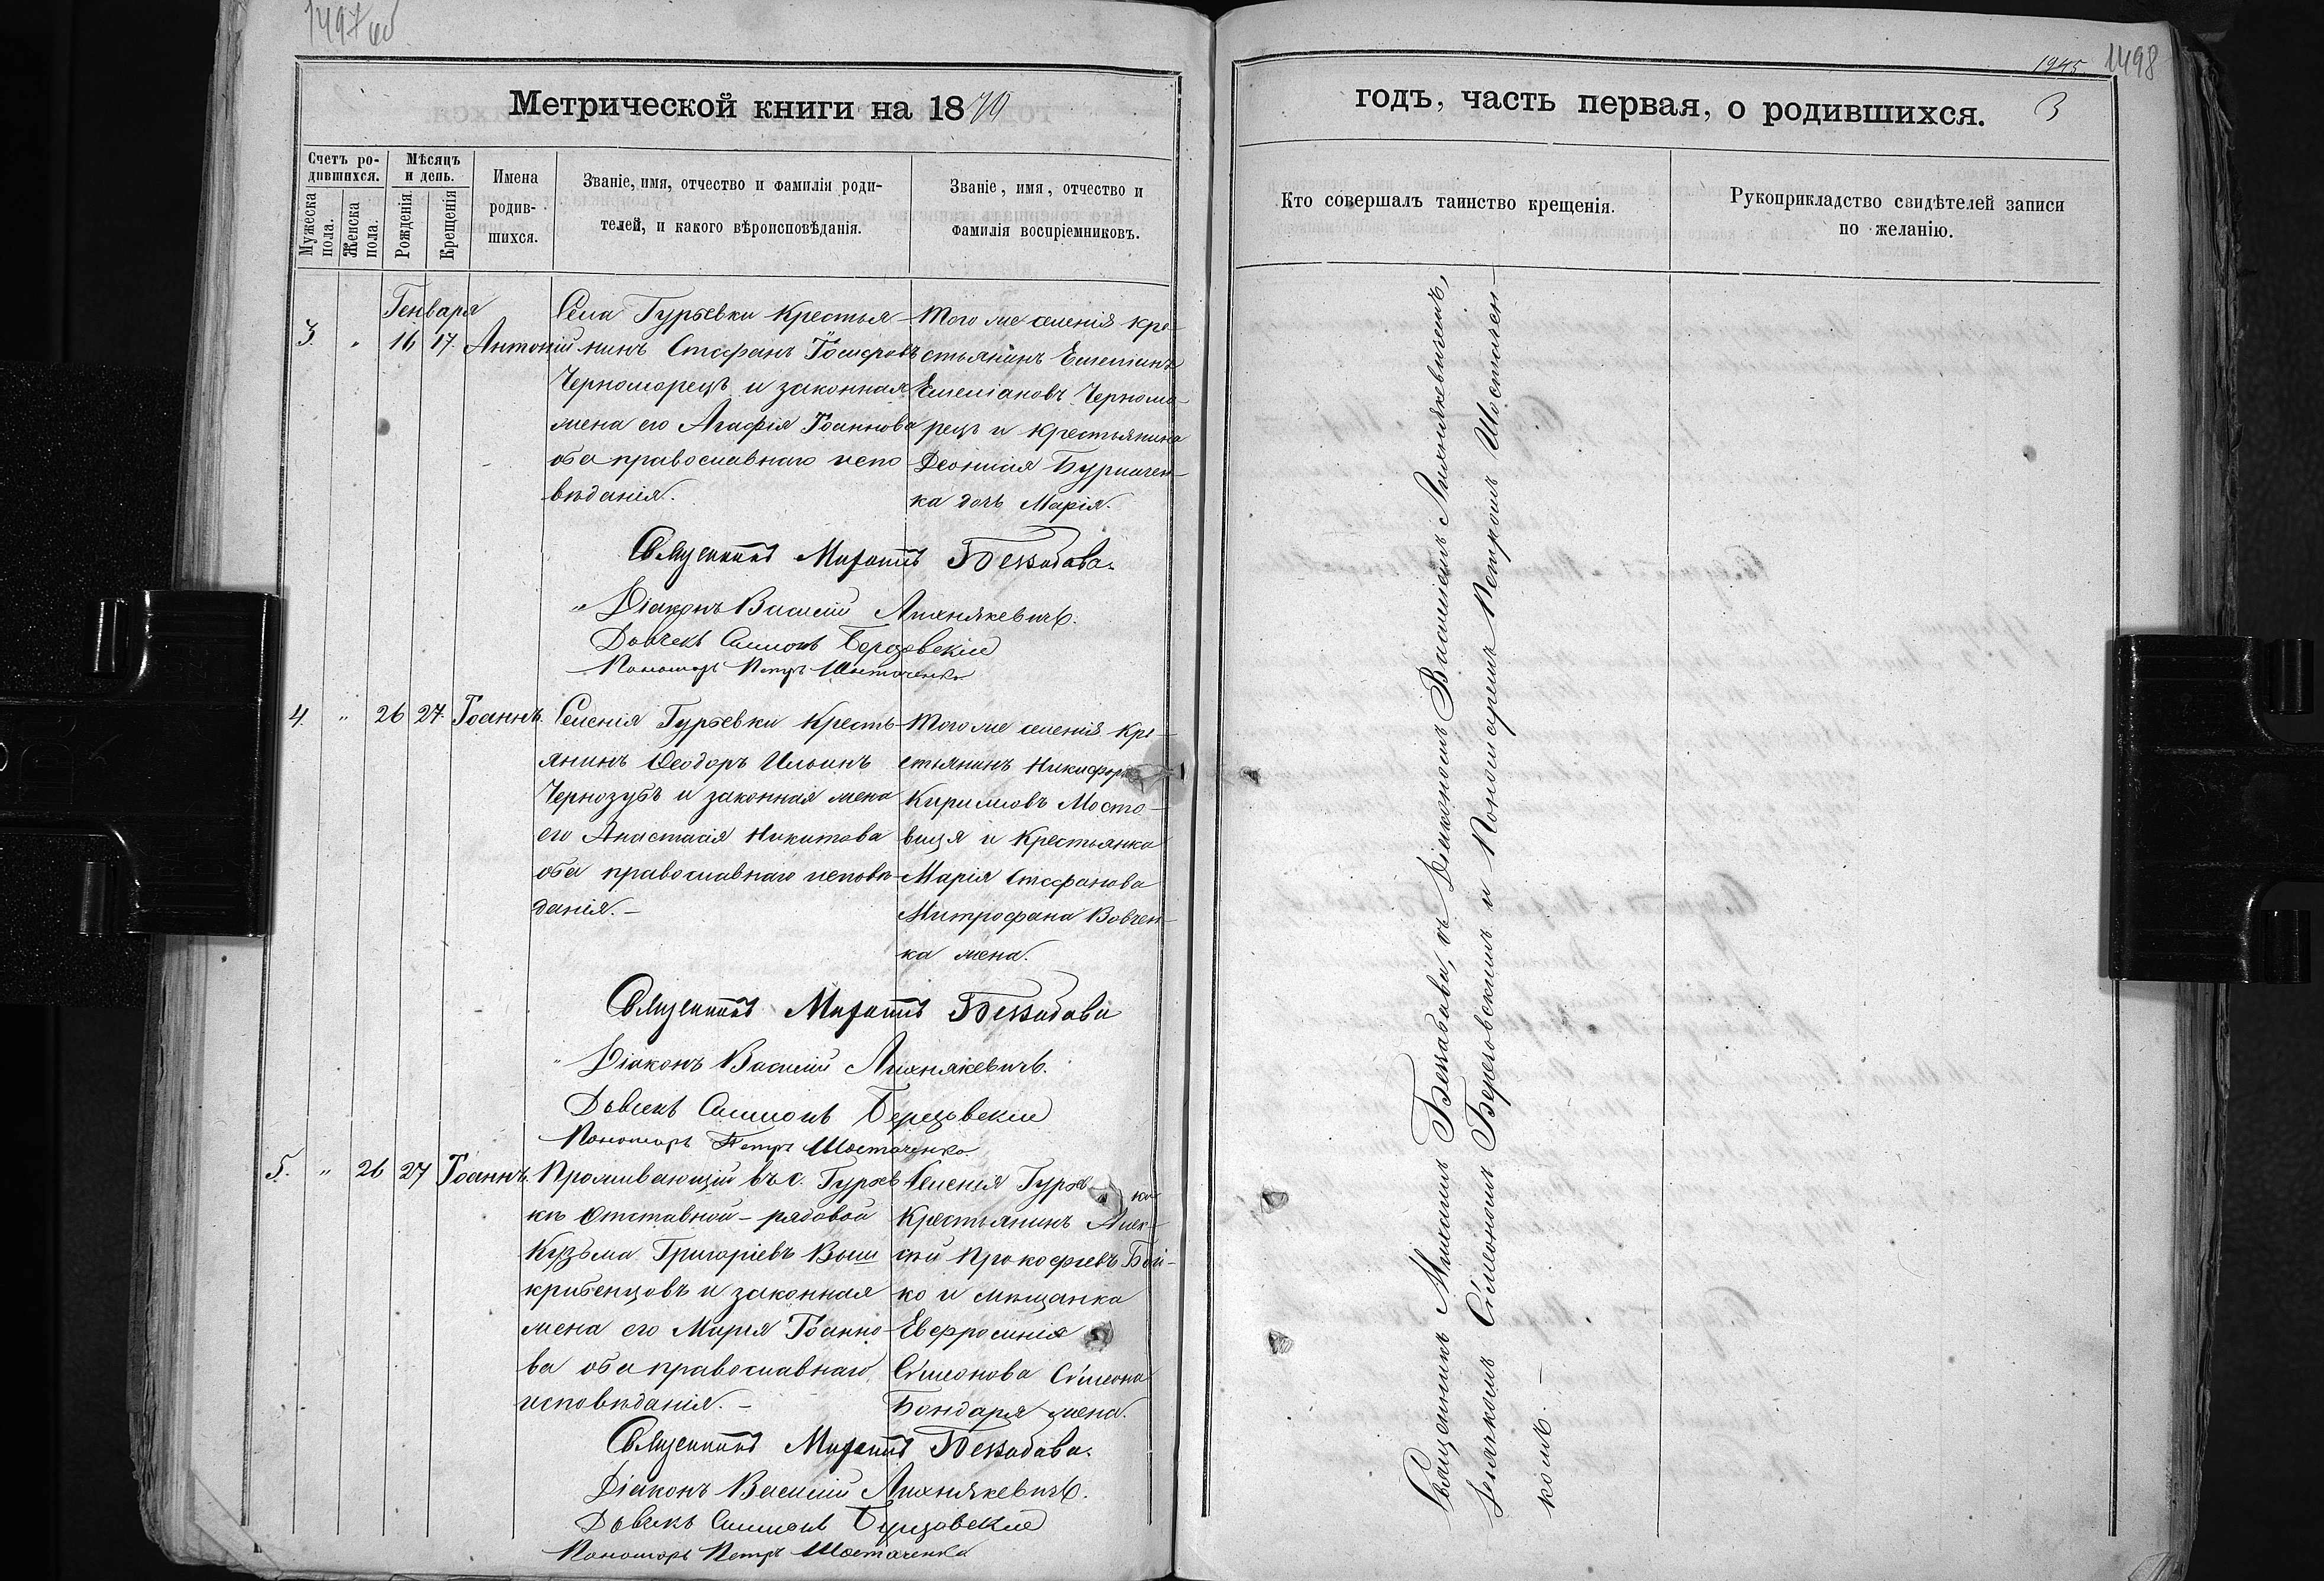 1497
Метрической книги на 1870
Счетъ ро-
дившихся.
Мужеска пола.
Женска пола.
Мѣсяцъ
и день.
Рожденія
Крещенія
Имена
родив-
шихся.
Званіе, имя, отчество и фамилія роди-
телей, и какого вѣроисповѣданія.
Званіе, имя, отчество и
фамилія воспріемниковъ.
Генваря
3. " 16 17. Антоній
Села Гурьевки Крестья-
нинъ Стефанъ Іосифовъ
Черноморецъ и законная
жена его Агафія Іоаннова
оба православнаго испо
вѣданія.
Того же селенія кре-
стьянинъ Емеліанъ
Емеліановъ Черномо-
рецъ и крестьянина
Леонтія Бурлачен-
ка дочь Марія.
Священникъ Михаилъ Беззабава.
" Діаконъ Василій Лихнякевичъ.
Дьячекъ Симеонъ Березовскій
Пономарь Петръ Шостаченко
4. " 26 27. Іоаннъ.
Селенія Гурьевки Кресть-
янинъ Ѳеодоръ Ильинъ
Чернозубъ и законная жена
его Анастасія Никитова
оба православнаго исповѣ-
данія.-
Того же селенія Кре-
стьянинъ Никифоръ
Кирилловъ Мосто-
вица и Крестьянка
Марія Стефанова
Митрофана Вовчен-
ка жена.
Священникъ Михаилъ Беззабава
" Діаконъ Василій Лихнякевичъ.
Дьячекъ Симеонъ Березовскій
Пономарь Петръ Шостаченко
5. " 26 27 Іоаннъ.
Проживающій въ с. Гурьев
кѣ Отставной-рядовой
Кузьма Григоріевъ Выш
крибенцовъ и законная
жена его Марія Іоанно-
ва оба православнаго
исповѣданія.-
Селенія Гурьев ки
Крестьянинъ Алек-
сѣй Прокофьевъ Бой-
ко и мѣщанка
Евфросинія
Сѵмеонова Сѵмеона
Бондаря жена.
Священникъ Михаилъ Беззабава.
Діаконъ Василій Лихнякевичъ.
Дьячекъ Симеонъ Березовскій
Пономарь Петръ Шостаченко
1945. 1498
годъ, часть первая, о родившихся. 3
Кто совершалъ таинство крещенія.
Рукоприкладство свидѣтелей записи
по желанію.
Священникъ Михаилъ Беззабава, съ Діакономъ Василіемъ Лихнякевичемъ,
Дьячкомъ Сѵмеономъ Березовскимъ и Пономаремъ Петромъ Шостачен-
комъ.-